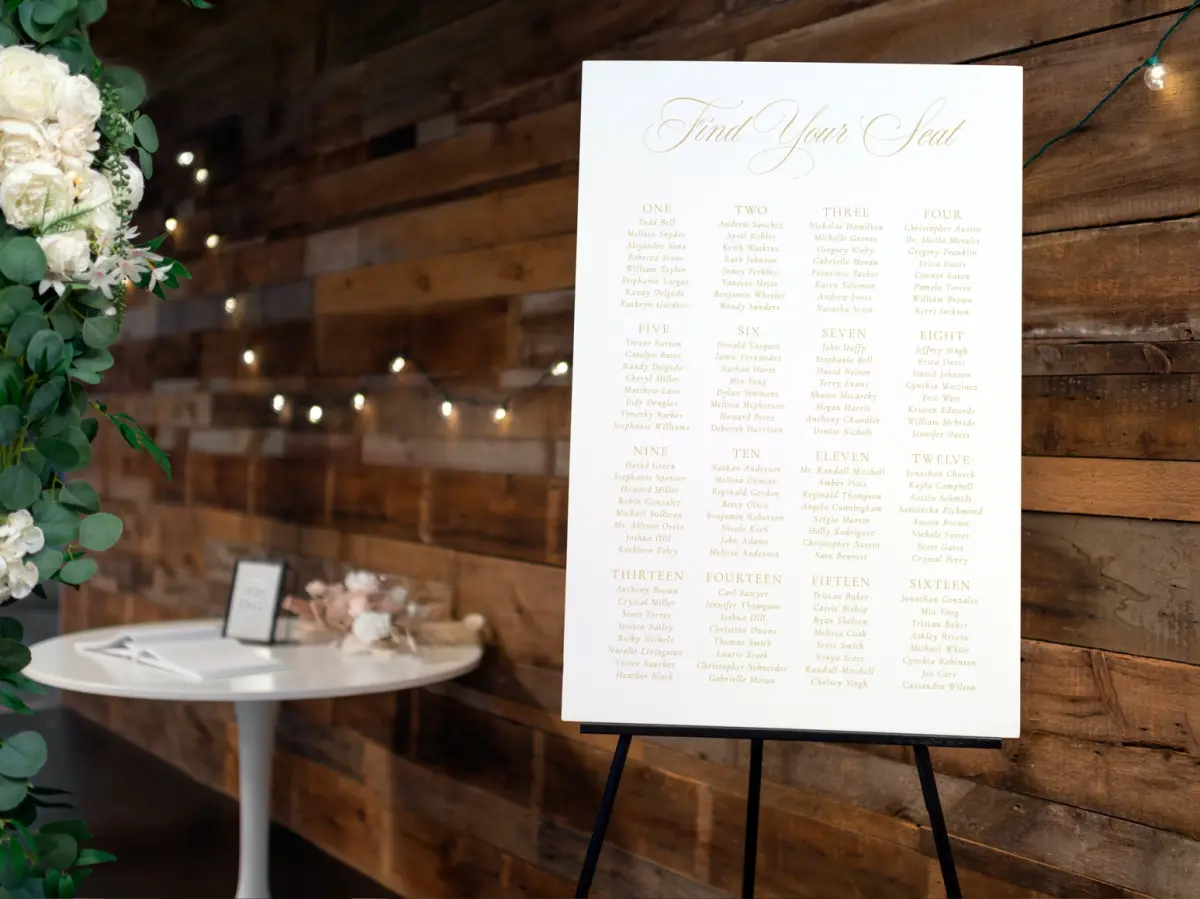 Find Your Seat
ONE
Todd Bell
Melissa Snyder
Alejandro Sims
Rebecca Stone
William Taylor
Stephanie Vargas
Randy Delgado
Kathryn Gardner
TWO
Andrew Sanchez
April Robles
Keith Watkins
Ruth Johnson
James Perkins
Vanessa Mejia
Benjamin Wheeler
Wendy Sanders
THREE
Nicholas Hamilton
Michelle Graves
Gregory Kirby
Gabrielle Moran
Francisco Tucker
Karen Solomon
Andrew Jones
Natasha Scott
FOUR
Christopher Austin
Dr. Sheila Morales
Gregory Franklin
Erica Davis
Connor Eaton
Pamela Torres
William Brown
Kerri Jackson
FIVE
Trevor Barton
Carolyn
Randy Delgado
Cheryl Miller
Matthew Lane
Jody Douglas
Timothy Barker
Stephanie Williams
SIX
Donald Vasquez
Jamie Fernandez
Nathan Hurst
Mia Yang
Dylan Simmons
Melissa Mcpherson
Howard Perez
Deborah Harrison
SEVEN
John Duffy
Stephanie Bell
David Nelson
Terry Evans
Shawn Mccarthy
Megan Harris
Anthony Chandler
Denise Nichols
EIGHT
Jeffrey Singh
Erica Davis
David Johnson
Cynthia Martinez
Eric West
Kristen Edwards
William Mcbride
Jennifer Davis
NINE
David Green
Stephanie Spencer
Howard Miller
Robin Gonzalez
Michael Sullivan
Ms. Allison Ortiz
Joshua Hill
Kathleen Foley
TEN
Nathan Anderson
Melissa Duncan
Reginald Gordon
Betsy Olsen
Benjamin Roberson
Nicole Koch
John Adams
Melissa Anderson
ELEVEN
Mr. Randall Mitchell
Amber Pitts
Reginald Thompson
Angela Cunningham
Sergio Martin
Holly Rodriguez
Christopher Austin
Sara Bennett
TWELVE
Jonathan Cheek
Kayla Campbell
Austin Schmidt
Samantha Richmond
Austin Brown
Nichole Foster
Scott Gates
Crystal Perry
THIRTEEN
Anthony Brown
Crystal Miller
Scott Torres
Jessica Bailey
Ricky Nichols
Natalie Livingston
Victor Sanchez
Heather Black
FOURTEEN
Carl Sawyer
Jennifer Thompson
Joshua Hill
Christine Owens
Thomas Smith
Laurie Stark
Christopher Schneider
Gabrielle Moran
FIFTEEN
Tristan Baker
Carrie Bishop
Ryan Shelton
Melissa Cook
Scott Smith
Sonya Scott
Randall Mitchell
Chelsey Singh
SIXTEEN
Jonathan Gonzales
Mia Yang
Tristan Baker
Ashley Rivera
Michael White
Cynthia Robinson
Joe Carr
Cassandra Wilson